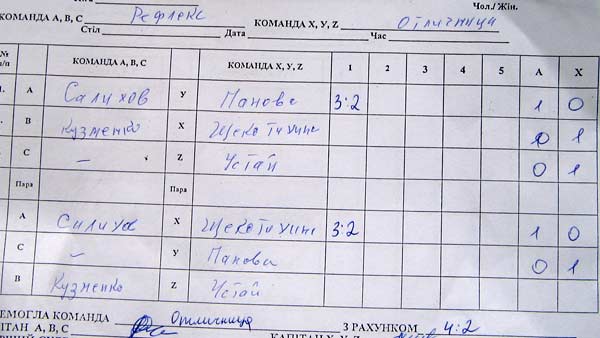 Чол./ Жін.
КОМАНДА А, В, С Рефлекс КОМАНДА X, Y, Z Отличница
Стіл Дата Час
№ п/п КОМАНДА А, В, С КОМАНДА X, Y, Z 1 2 3 4 5 А Х
А Салихов У Панова 3:2 1 0
В Кузменко Х Щекотихина 0 1
С – Z Устай 0 1
Пара Пара
А Салихов Х Щекотихин 3:2 1 0
С – У Панова 0 1
В Кузменко Z Устай
ЕМОГЛА КОМАНДА Отличница З РАХУНКОМ 4:2
ІТАН А, В, С КАПІТАН X, Y, Z